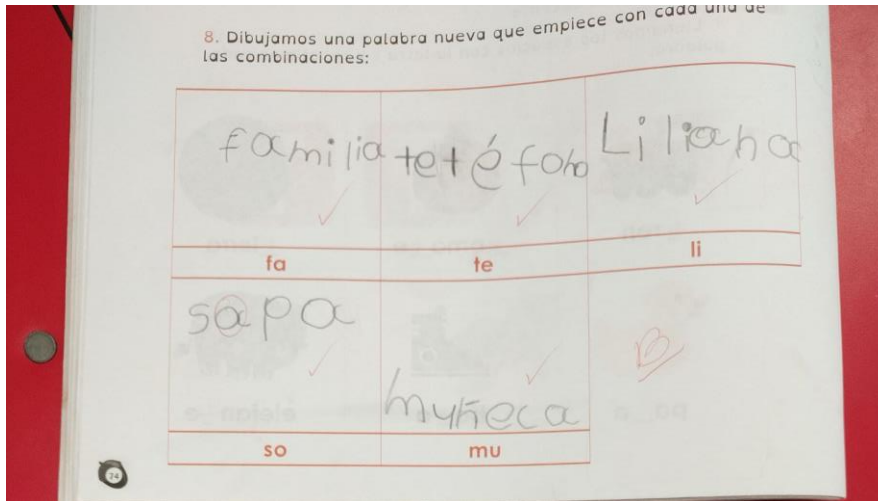 8. Dibujamos una palabra nueva que empiece con cada una de
las combinaciones:
familia tetéfono Liliana
fa te li
sapa
muñeca
so mu
24